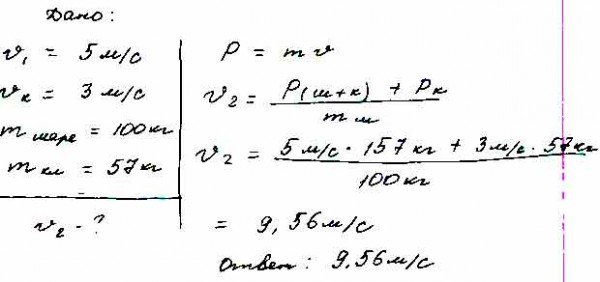 Дано:
v₁ = 5 м/с
vк = 3 м/с
m шаре = 100 кг
m кл = 57 кг
v₂ - ?
P = mv
v₂ = P(ш+к) + Pк / m ш
v₂ = 5 м/с · 157 кг + 3 м/с · 57 кг / 100 кг
= 9,56 м/с
Ответ: 9,56 м/с